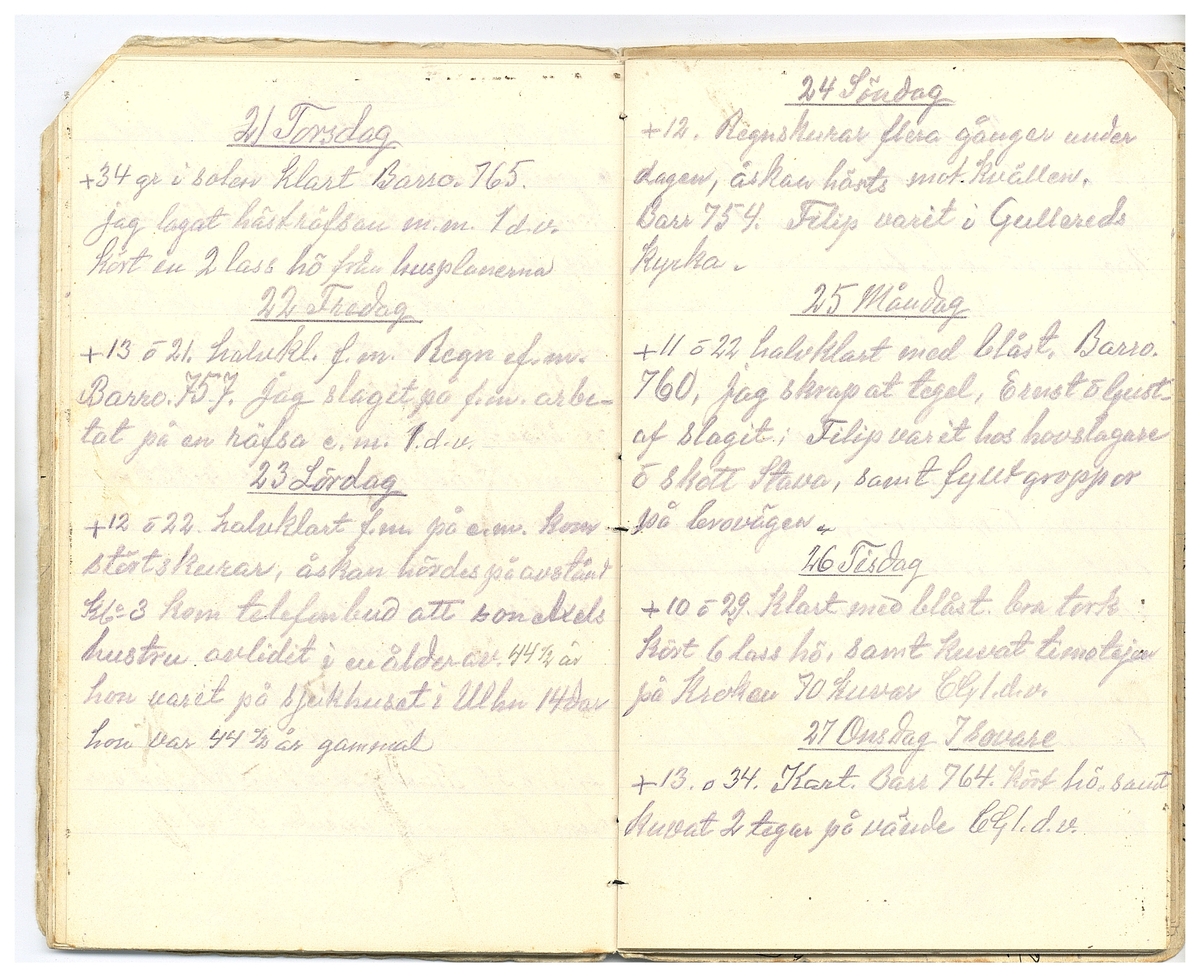 21 Torsdag
+34 gr i solen klart Barro. 765.
jag lagat hästräfsan m.m. 1 d.v.
kört en 2 lass hö från husplanerna
22 Fredag
+13 ö 21. halvkl. f.m. Regn ef.m.
Barro. 757. jag slaget på f.m. arbe-
tat på en räfsa e.m. 1.d.v.
23 Lördag
+12 ö 22. halvklart f.m. på e.m. kom
störtskurar, åskan hördes på avstånd
Kl. 3 kom telefonbud att son Axels
hustru avlidit i en ålder av. 44½ år
hon varit på sjukhuset i Ulhn 14 dar
hon var 44½ år gammal
24 Söndag
+12. Regnskurar flera gånger under
dagen, åskan hörts mot kvällen.
Barr 754. Filip varit i Gullereds
kyrka.
25 Måndag
+11 ö 22 halvklart med blåst. Barro.
760, jag skrapat tegel, Ernst ö Gust-
af slagit; Filip varit hos hovslagare
ö skott Stava, samt fyllt groppor
på brovägen
26 Tisdag
+10 ö 29. Klart med blåst. bra tork
kört 6 lass hö, samt kuvat timotejen
på Kroken 70 kuvar CG 1.d.v.
27 Onsdag 7 sovare
+13. o 34. Kart. Barr 764. kört hö, samt
kuvat 2 tegar på vände CG 1.d.v.